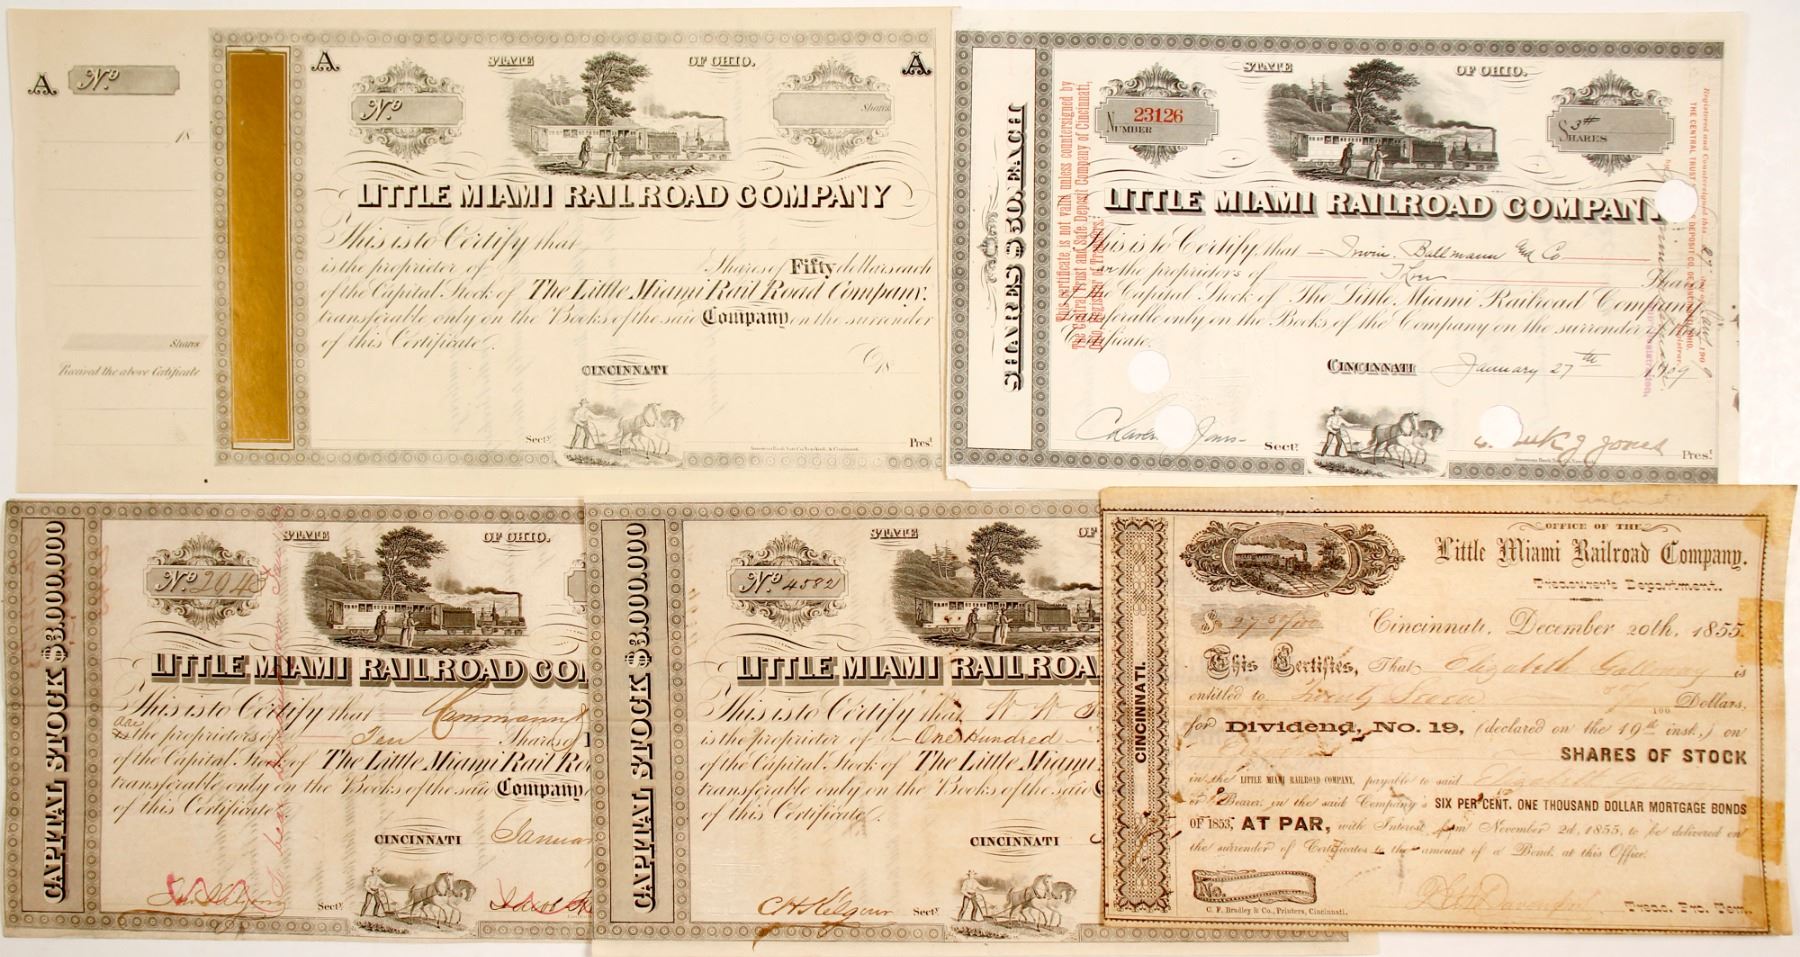 A
No
18
Shares
Received the above Certificate
A
A
STATE OF OHIO.
No
Shares
LITTLE MIAMI RAILROAD COMPANY
This is to Certify that
is the proprietor of Shares of Fifty dollars each
of the Capital Stock of The Little Miami Rail Road Company.
transferable only on the Books of the said Company on the surrender
of this Certificate.
CINCINNATI 18
Secty. Prest.
SHARES $50. EACH
This certificate is not valid unless countersigned by
The Central Trust and Safe Deposit Company of Cincinnati,
Ohio, Registrar of Transfers.
STATE OF OHIO.
23126
NUMBER
3
SHARES
LITTLE MIAMI RAILROAD COMPANY
This is to Certify that Irwin, Ballmann and Co
the proprietors of Shares
of the Capital Stock of The Little Miami Railroad Company
transferable only on the Books of the Company on the surrender of this
Certificate.
CINCINNATI January 27th 1909
Secty. Prest.
Registered and Countersigned this
THE CENTRAL TRUST
DEPOSIT CO.
Registrar.
CAPITAL STOCK $3,000,000
STATE OF OHIO.
No 2048
LITTLE MIAMI RAILROAD CO
This is to Certify that
are the proprietors of Ten Shares of
of the Capital Stock of The Little Miami Rail Ro
transferable only on the Books of the said Company
of this Certificate.
CINCINNATI Januar
Secty.
CAPITAL STOCK $3,000,000
STATE OF
No 4582
LITTLE MIAMI RAILROA
This is to Certify that W. W.
is the proprietor of One Hundred
of the Capital Stock of The Little Miami
transferable only on the Books of the said C
of this Certificate.
CINCINNATI
C H Kilgour Secty.
CINCINNATI.
OFFICE OF THE
Little Miami Railroad Company.
Treasurer's Department.
$ 27 50/100
Cincinnati, December 20th, 1855.
This Certifies, That Elizabeth Galloway is
entitled to Twenty Seven 50/100 Dollars,
for Dividend, No. 19, (declared on the 19th inst.,) on
SHARES OF STOCK
in the LITTLE MIAMI RAILROAD COMPANY, payable to said Elizabeth Galloway
or Bearer, in the said Company's SIX PER CENT. ONE THOUSAND DOLLAR MORTGAGE BONDS
OF 1853, AT PAR, with Interest from November 2d, 1855, to be delivered on
the surrender of Certificates to the amount of a Bond, at this Office.
No.
Treas. Pro. Tem.
C. F. Bradley & Co., Printers, Cincinnati.